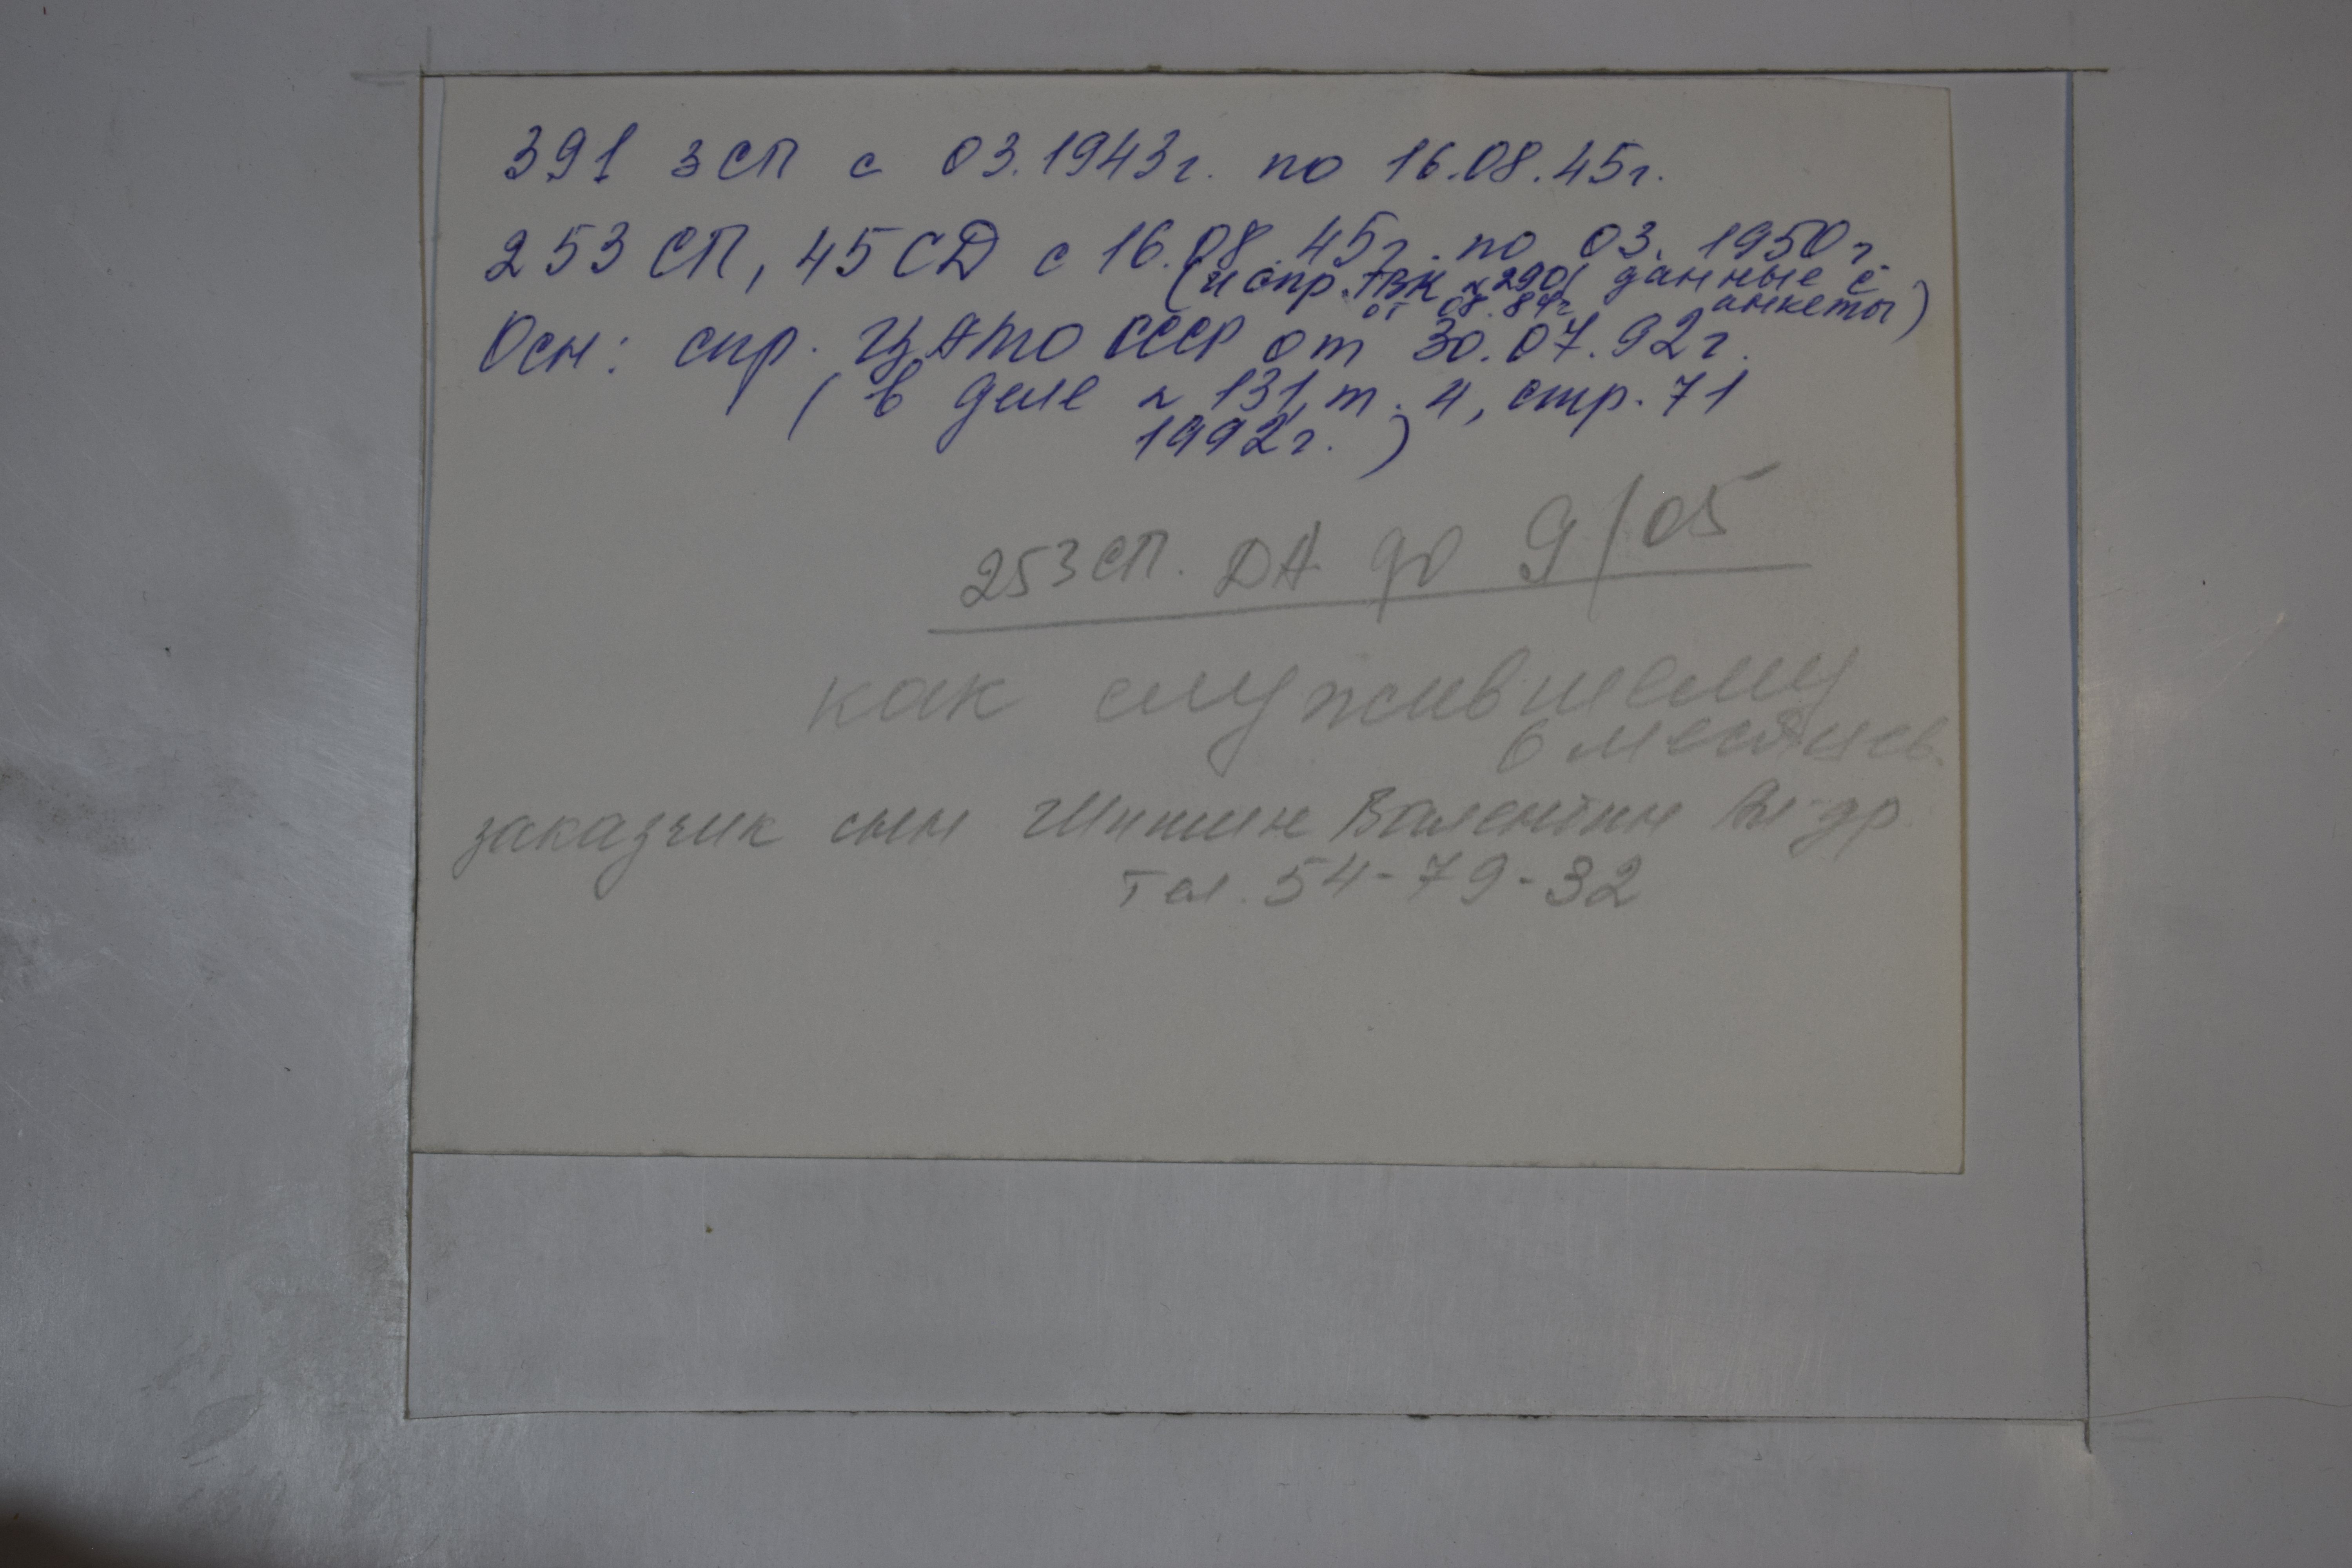 391 зсп с 03.1943г. по 16.08.45г.
253 СП, 45СД с 16.08.45г. по 03.1950г.
(и спр. РВК № 290 данные с
от 08.84г анкеты)
Осн: спр. ЦАМО СССР от 30.07.92г.
(в деле № 131, т. 4, стр. 71
1992г.)
253 СП. ДА до 9/05
как служившему
6 месяцев.
заказчик сын Шишин Валентин
тел. 54-79-32